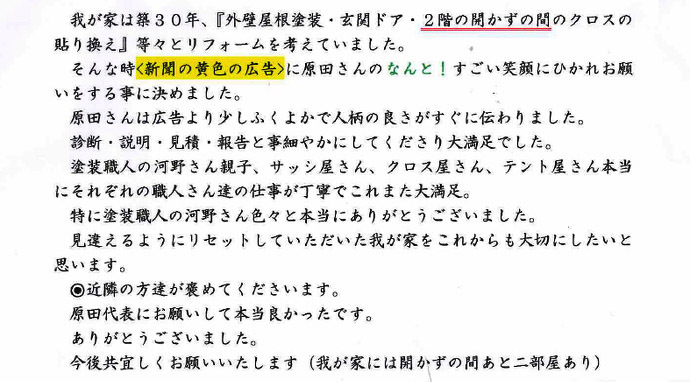 我が家は築３０年、『外壁屋根塗装・玄関ドア・２階の開かずの間のクロスの
貼り換え』等々とリフォームを考えていました。
そんな時<新聞の黄色の広告>に原田さんのなんと！すごい笑顔にひかれお願
いをする事に決めました。
原田さんは広告より少しふくよかで人柄の良さがすぐに伝わりました。
診断・説明・見積・報告と事細やかにしてくださり大満足でした。
塗装職人の河野さん親子、サッシ屋さん、クロス屋さん、テント屋さん本当
にそれぞれの職人さん達の仕事が丁寧でこれまた大満足。
特に塗装職人の河野さん色々と本当にありがとうございました。
見違えるようにリセットしていただいた我が家をこれからも大切にしたいと
思います。
◉近隣の方達が褒めてくださいます。
原田代表にお願いして本当良かったです。
ありがとうございました。
今後共宜しくお願いいたします（我が家には開かずの間あと二部屋あり）